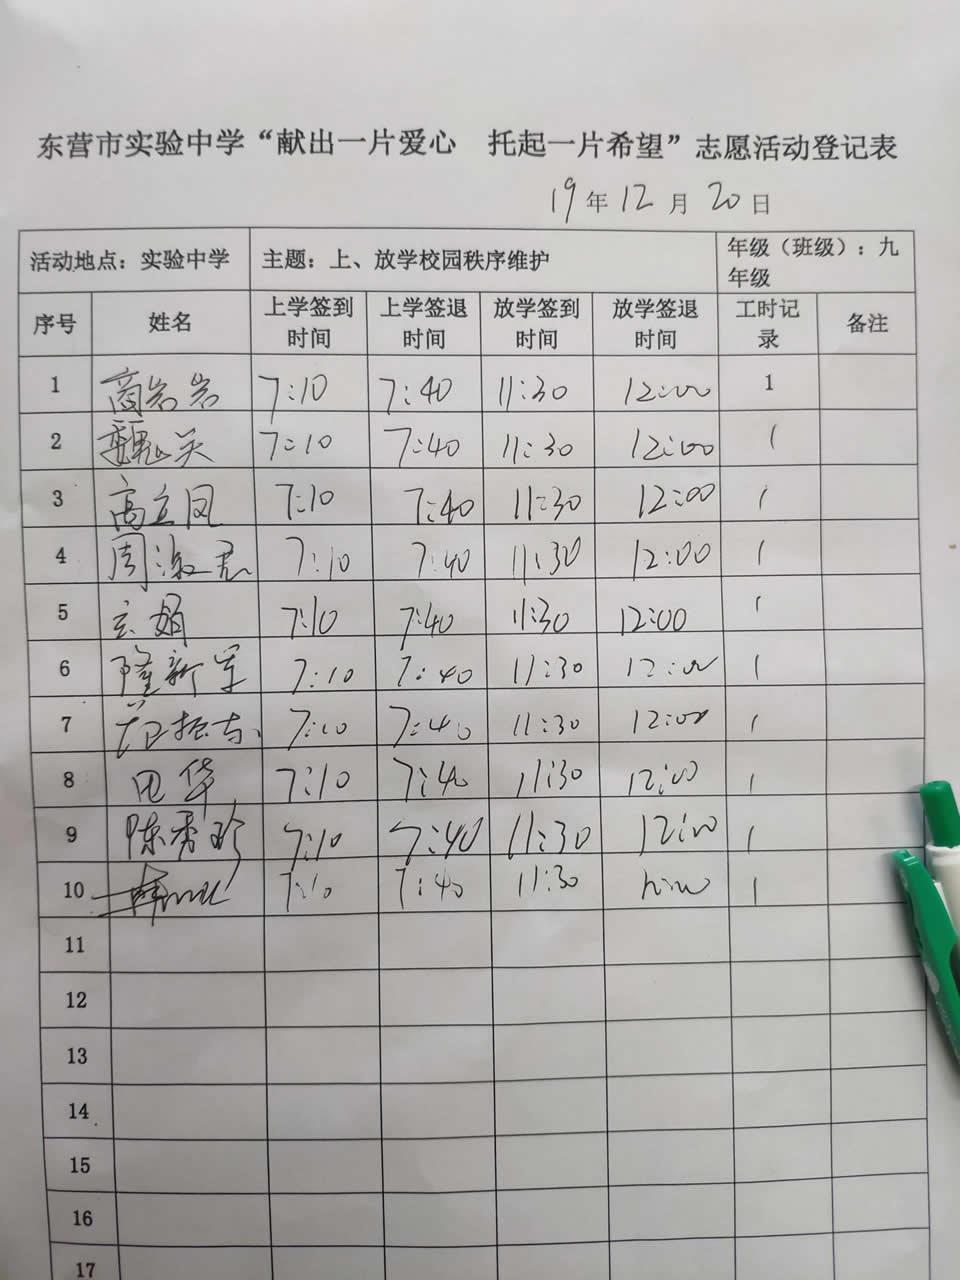 东营市实验中学“献出一片爱心 托起一片希望”志愿活动登记表
19年12月20日
活动地点：实验中学 主题：上、放学校园秩序维护 年级（班级）：九年级
序号 姓名 上学签到时间 上学签退时间 放学签到时间 放学签退时间 工时记录 备注
1 商岩岩 7:10 7:40 11:30 12:00 1
2 魏关 7:10 7:40 11:30 12:00 1
3 高立凤 7:10 7:40 11:30 12:00 1
4 周淑君 7:10 7:40 11:30 12:00 1
5 娟 7:10 7:40 11:30 12:00 1
6 隆新军 7:10 7:40 11:30 12:00 1
7 7:10 7:40 11:30 12:00 1
8 田华 7:10 7:40 11:30 12:00 1
9 陈秀珍 7:10 7:40 11:30 12:00 1
10 7:10 7:40 11:30 12:00 1
11
12
13
14
15
16
17